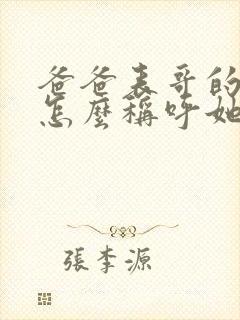 爸爸表哥的
怎麼稱呼她
張李源